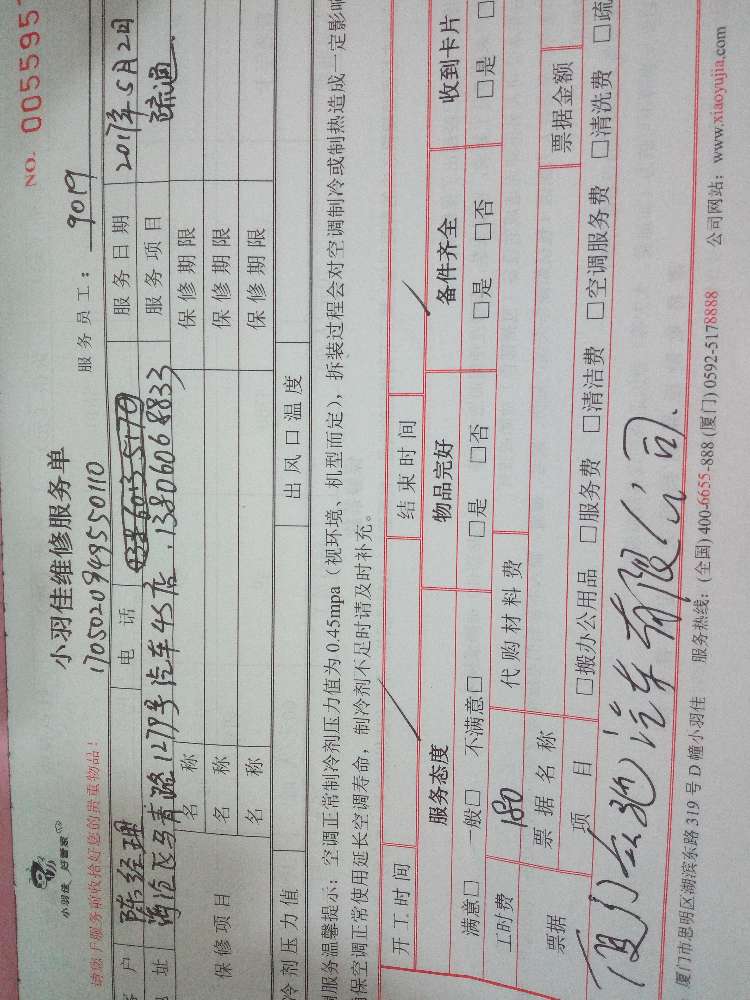 小羽佳 好管家
NO. 005595
小羽佳维修服务单
1705020949550110
请您于服务前收拾好您的贵重物品！
服务员工：9019
户 陈经理 电话 服务日期 2017年5月2日
址 海沧区马青路1279号汽车4S店.13806068833 服务项目 疏通
保修项目 名称 保修期限
名称 保修期限
名称 保修期限
冷剂压力值 出风口温度
服务温馨提示：空调正常制冷剂压力值为0.45mpa（视环境、机型而定），拆装过程会对空调制冷或制热造成一定影响
保空调正常使用延长空调寿命，制冷剂不足时请及时补充。
开工时间 结束时间
服务态度 物品完好 备件齐全 收到卡片
满意□ 一般□ 不满意□ □是 □否 □是 □否 □是
工时费 180 代购材料费
票据 票据名称 票据金额
项目 □搬办公用品 □服务费 □清洁费 □空调服务费 □清洗费 □疏
汽车有限公司.
厦门市思明区湖滨东路319号D幢小羽佳 服务热线：(全国)400-6655-888 (厦门)0592-5178888 公司网站：www.xiaoyujia.com